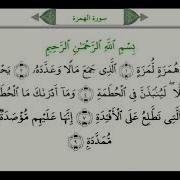 سورة الهمزة
بِسْمِ اللَّهِ الرَّحْمَٰنِ الرَّحِيمِ
هُمَزَةٍ لُّمَزَةٍ ١ الَّذِي جَمَعَ مَالًا وَعَدَّدَهُ ٢ يَحْ
لَيُنۢبَذَنَّ فِي الْحُطَمَةِ ٤ وَمَا أَدْرَىٰكَ مَا الْحُطَ
الَّتِي تَطَّلِعُ عَلَى الْأَفْـِٔدَةِ ٧ إِنَّهَا عَلَيْهِم مُّؤْصَدَةٌ
مُّمَدَّدَةٍ ٩